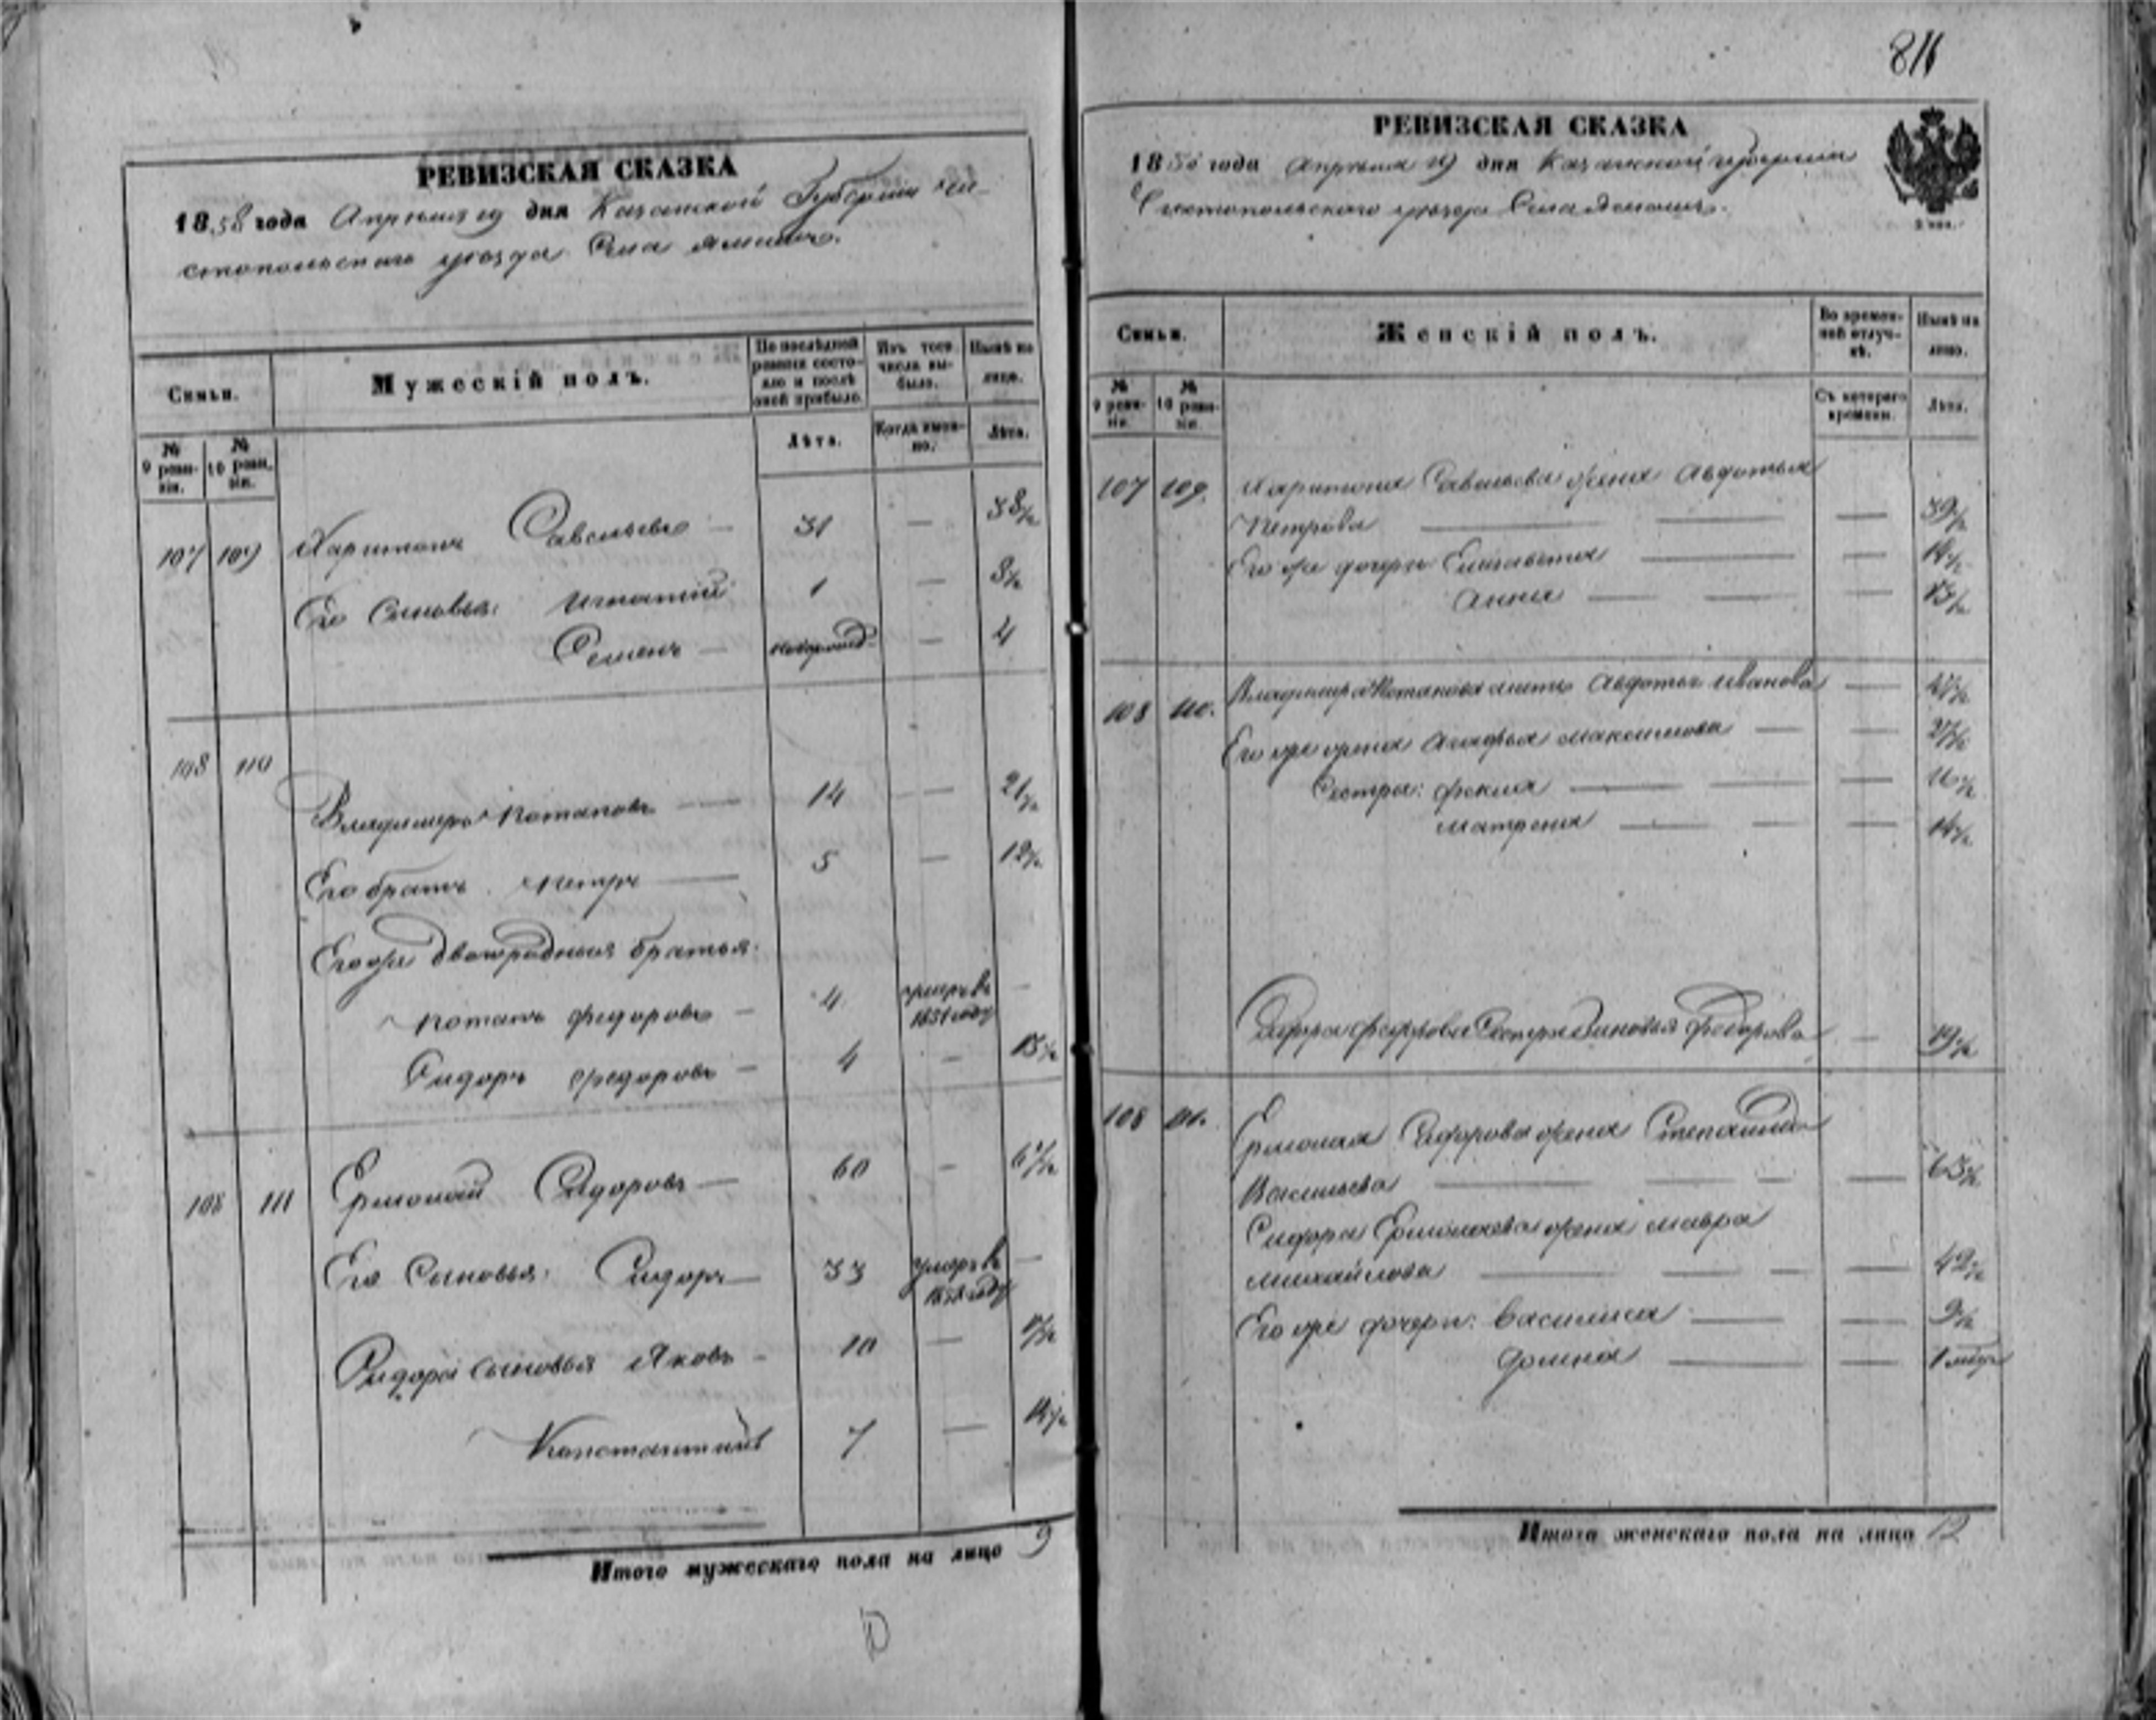 811
РЕВИЗСКАЯ СКАЗКА
1858 года Апреля 19 дня Казанской Губернии Чи-
стопольскаго уезда Села
Семьи.
Мужескій полъ.
По последней ревизіи состояло и после оной прибыло.
Изъ того числа выбыло.
Ныне на лицо.
№ 9 ревизіи.
№ 10 ревизіи.
Лѣта.
Когда именно.
Лѣта.
107 109 Харитонъ Савельевъ — 31 — 38½
Его Сыновья: Игнатій 1 — 8½
Семенъ — новорожд. — 4
108 110
Владимеръ Потаповъ — 14 — 21½
Его братъ Петръ — 5 — 12½
Его же двоюродныя братья:
Потапъ Федоровъ — 4 умеръ в 1851 году —
Сидоръ Федоровъ — 4 —
108 111 Ермолай Сидоровъ — 60 — 67½
Его Сыновья: Сидоръ — 33 умеръ в году —
Сидора сыновья Яковъ — 10 — 17½
Константинъ 7 — 14½
Итого мужескаго пола на лицо 9
РЕВИЗСКАЯ СКАЗКА
1858 года Апреля 19 дня Казанской губернии
Чистопольскаго уезда Села
Семьи.
Женскій полъ.
Во временной отлучкѣ.
Нынѣ на лицо.
№ 9 ревизіи.
№ 10 ревизіи.
Съ котораго времени.
Лѣта.
107 109. Харитона Савельева жена Авдотья
Петрова — — — 39½
Его же дочери Елисавета — — 14½
Анна — — —
108 110. Владимера Потапова мать Авдотья Иванова — 47½
Его же жена Агафья Максимова — —
Сестры: Фекла — — — 16½
Матрена — — — 14½
Сидора Федорова Сестра Зиновья Федорова — 19½
108 111. Ермолая Сидорова жена Степанида
Васильева — — — — 63½
Сидора Ермолаева жена Мавра
Михайлова — — — — 42½
Его же дочери: Василиса — — 9½
Домна — —
Итого женскаго пола на лицо 12